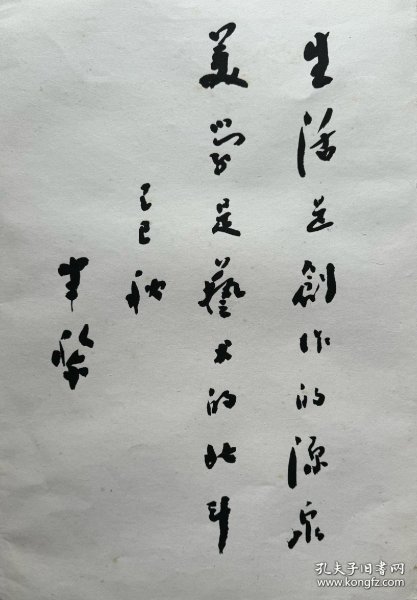 生活是創作的源泉
美學是藝术的北斗
乙巳秋
孔夫子旧书网
www.kongfz.com